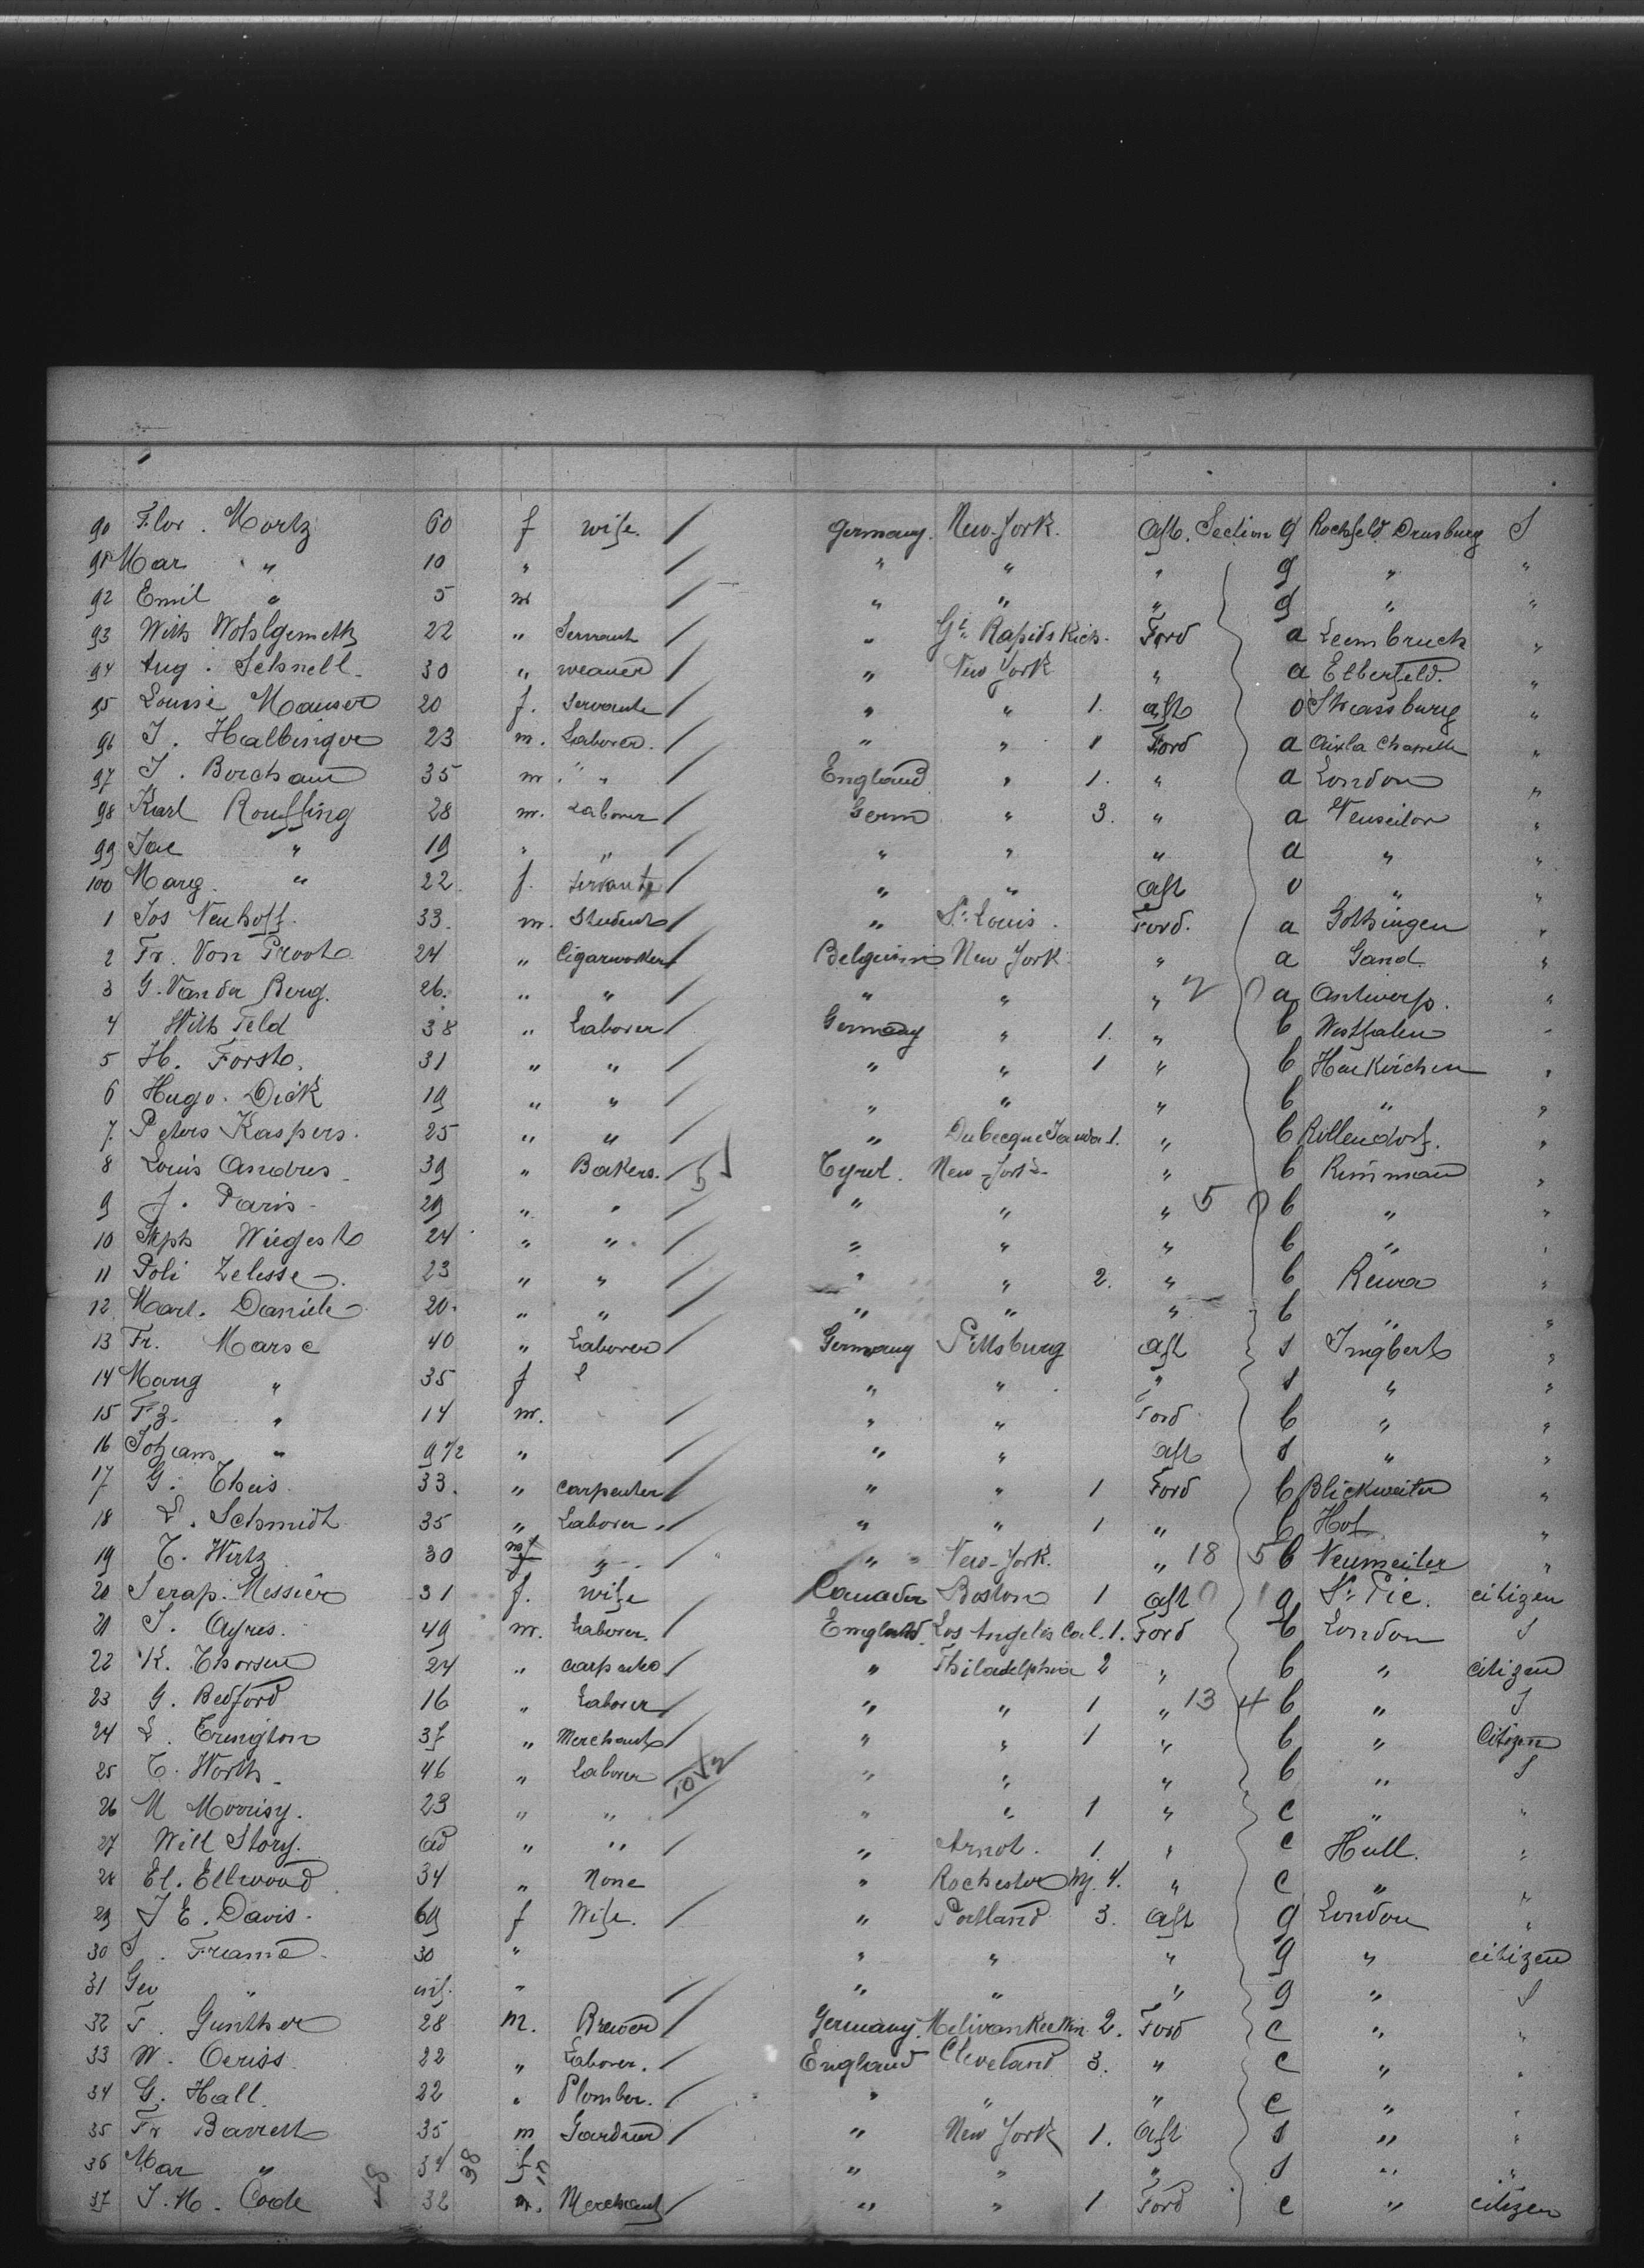 90 Flor. Mortz 60 f wife. / Germany. New-York. Aft. Section g Rochfeld Drusburg S
91 Mar " 10 " / " " " g " "
92 Emil " 5 m / " " " g " "
93 Wilh 22 " Servant / " Gd. Rapids Ford a "
94 Aug. Schnell. 30 " weaver / " New York " a Elberfeld. "
95 Louise Mauser 20 f. Servante / " " 1. aft o Strassburg "
96 J. Halbinger 23 m. Laborer. / " " 1 Ford a Aixla Chapelle "
97 J. Borcham 35 m. " " / England " 1. " a London "
98 Karl Rouffing 28 m. Laborer / Germ " 3. " a "
99 Jac " 19 " " / " " " a " "
100 Marg. " 22 f. servante / " " aft o " "
1 Jos Neuhoff. 33. m. Student / " St. Louis. Ford. a Gottingen "
2 Fr. Von Proot 24 " Cigarworker / Belgium New York " a Gand. "
3 G. Vander Berg. 26. " " / " " " 2 a Antwerp. "
4 Wilh Feld 38 " Laborer / Germany " 1. " b Westfalen "
5 H. Forst. 31 " " / " " 1 " b "
6 Hugo. Dick 19 " " / " " " b " "
7. Peters Kaspers. 25 " " / " Dubecque Iowa 1. " b "
8 Louis Andres 39 " Bakers. / 5 Tyrol. New-York. " b "
9 J. Paris - 29 " " / " " " 5 b " "
10 Steph 24 " " / " " " b " "
11 Poli Zelesse. 23 " " / " " 2. " b "
12 Mart. Daniele 20. " " / " " " b " "
13 Fr. Marsc 40 " Laborer / Germany Pittsburg aft s Ingbert "
14 Marg " 35 f " " " s " "
15 Fz. " 14 m. / " " Ford b " "
16 Johann " 9 1/2 " / " " aft s " "
17 G. Theis 33. " carpenter / " " 1 Ford b Blickweiler "
18 L. Schmidt 35 " Laborer / " " 1 " b Hof "
19 T. Wirtz 30 m " / " New-York. " 18 5 b "
20 Serap. Messier 31 f. wife Canada Boston 1 aft 0 1 g St. Pie. citizen
21 J. Ayres. 49 m. Laborer. / England. Los Angeles Cal. 1. Ford b London S
22 K. Thorsen 24 " carpenter / " Philadelphia 2 " b " citizen
23 G. Bedford 16 " Laborer / " " 1 " 13 4 b " S
24 L. Erington 37 " Merchant / " " 1 " b " Citizen
25 T. Worth 46 " Laborer / " " " b " S
26 M Morrisy. 23 " " / " " 1 " c " "
27 Will Story. ad " " / " Arnot. 1. " c Hull. "
28 El. Ellwood 34 " None " Rochester NY. 4. " c " "
29 J E. Davis. 69 f Wife. / " Portland 3. aft g London "
30 30 " " " " g " citizen
31 Geo " inf. " / " " " g " S
32 F. Gunther 28 m. Brewer / Germany. 2. Ford c " "
33 W. Ceriss 22 " Laborer. / England Cleveland 3. " c " "
34 G. Hall. 22 " Plomber. / " " " c " "
35 Fr Barrett 35 m Gardner / " New York 1. aft s " "
36 Mar " 34 38 f " " " s " "
37 J. N. Cook 32 m. Merchant / " " 1 Ford c " citizen